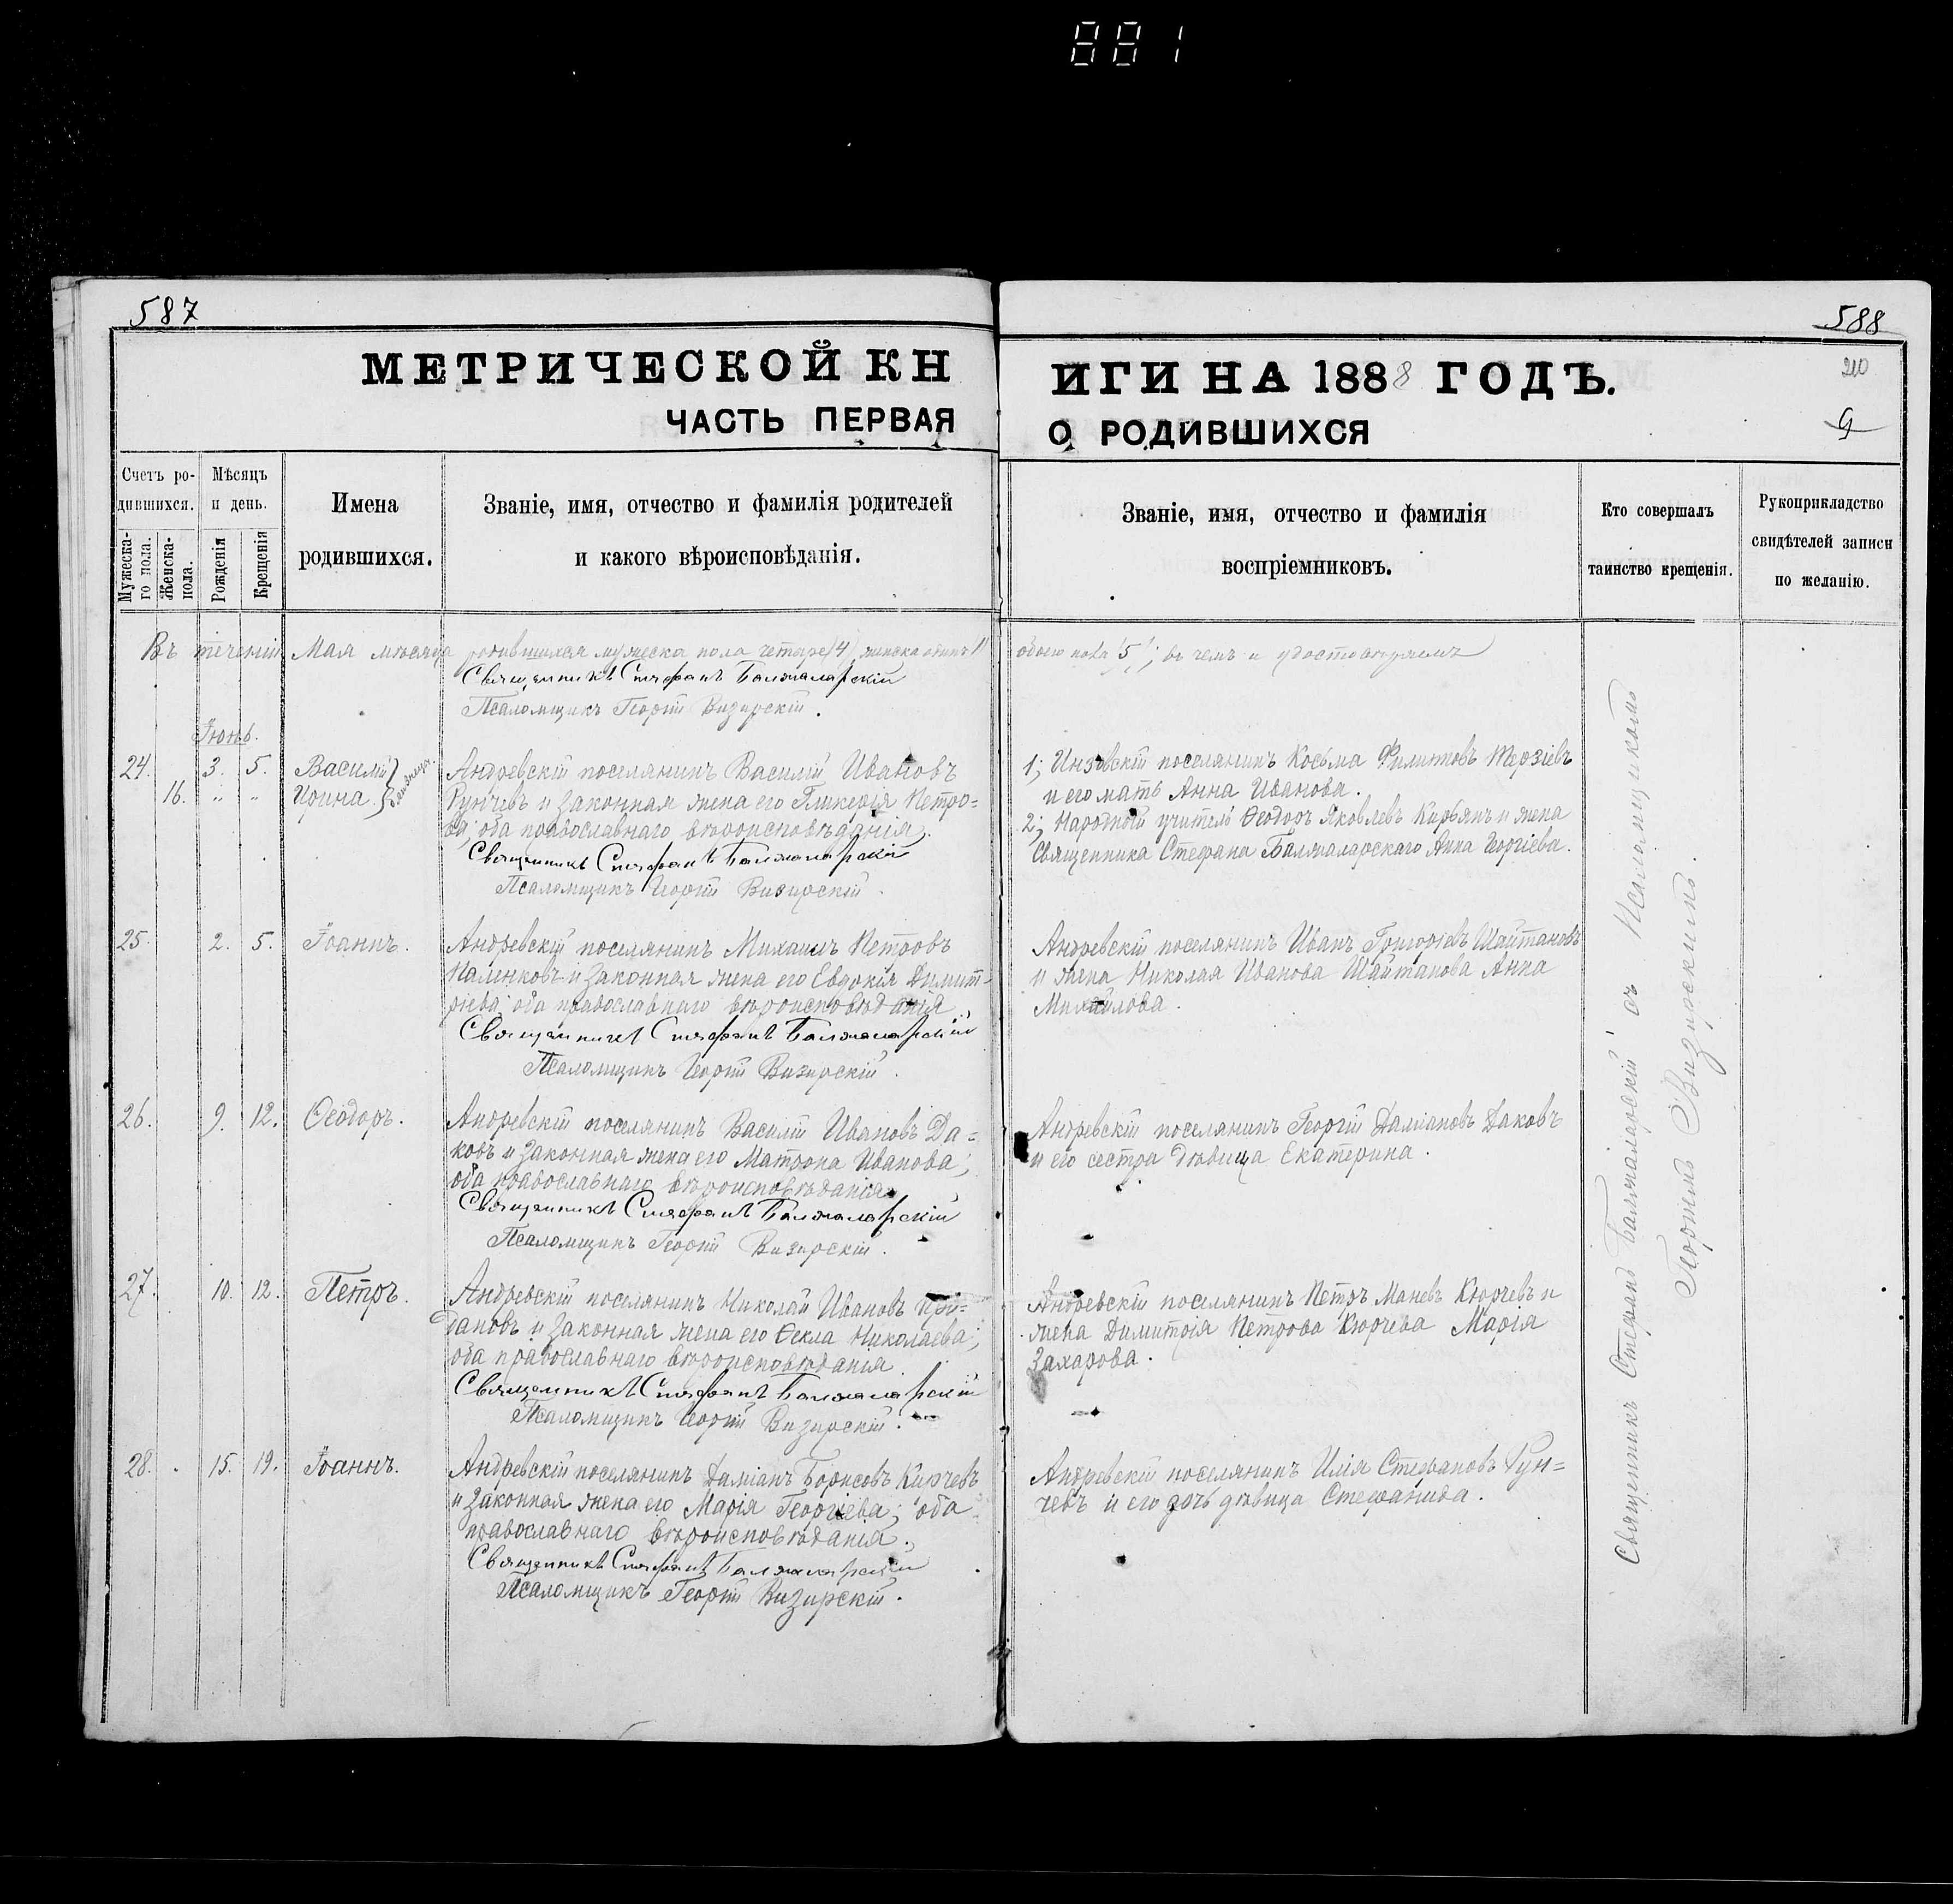 881
587
588
МЕТРИЧЕСКОЙ КН
ИГИ НА 1888 ГОДЪ.
210
9
ЧАСТЬ ПЕРВАЯ
О РОДИВШИХСЯ
Счетъ ро-
дившихся.
Мужеска-
го пола.
Женска-
пола.
Мѣсяцъ
и день.
Рожденія
Крещенія
Имена
родившихся.
Званіе, имя, отчество и фамилія родителей
и какого вѣроисповѣданія.
Званіе, имя, отчество и фамилія
воспріемниковъ.
Кто совершалъ
таинство крещенія.
Рукоприкладство
свидѣтелей записи
по желанію.
Въ теченіи Мая мѣсяца родившихся мужеска пола четыре /4/, женска одинъ /1/ обоего пола /5/; въ чемъ и удостовѣряемъ
Священникъ Стефанъ Балжаларскій
Псаломщикъ Георгій Визирскій.
Іюнь.
24. 3. 5. Василій
16. " " Ирина
Андреевскій поселянинъ Василій Ивановъ
Рунчевъ и законная жена его Гликерія Петро-
ва; оба православнаго вѣроисповѣданія.
Священникъ Стефанъ Балжаларскій
Псаломщикъ Георгій Визирскій.
1; Инзовскій поселянинъ Косьма Филиповъ Терзіевъ
и его мать Анна Иванова.
2; Народный учитель Ѳеодоръ Яковлевъ Кирьянъ и жена
Священника Стефана Балжаларскаго Анна Георгіева.
25. 2. 5. Іоаннъ.
Андреевскій поселянинъ Михаилъ Петровъ
Паленковъ и законная жена его Евдокія Димит-
ріева; оба православнаго вѣроисповѣданія
Священникъ Стефанъ Балжаларскій
Псаломщикъ Георгій Визирскій.
Андреевскій поселянинъ Иванъ Григоріевъ Шайтановъ
и жена Николая Иванова Шайтанова Анна
Михайлова.
26. 9. 12. Ѳеодоръ.
Андреевскій поселянинъ Василій Ивановъ Да-
ковъ и законная жена его Матрона Иванова;
оба православнаго вѣроисповѣданія
Священникъ Стефанъ Балжаларскій
Псаломщикъ Георгій Визирскій.
Андреевскій поселянинъ Георгій Даміановъ Даковъ
и его сестра дѣвица Екатерина.
27. 10. 12. Петръ.
Андреевскій поселянинъ Николай Ивановъ
и законная жена его Ѳекла Николаева;
оба православнаго вѣроисповѣданія
Священникъ Стефанъ Балжаларскій
Псаломщикъ Георгій Визирскій.
Андреевскій поселянинъ Петръ Маневъ Кюрчевъ и
жена Димитрія Петрова Кюрчева Марія
Захарова.
28. 15. 19. Іоаннъ.
Андреевскій поселянинъ Даміанъ Борисовъ Кюрчевъ
и законная жена его Марія Георгіева; оба
православнаго вѣроисповѣданія.
Священникъ Стефанъ Балжаларскій
Псаломщикъ Георгій Визирскій.
Андреевскій поселянинъ Илія Стефановъ Рун-
чевъ и его дочь дѣвица Стефанида.
Священникъ Стефанъ Балжаларскій съ Псаломщикомъ
Георгіемъ Визирскимъ.